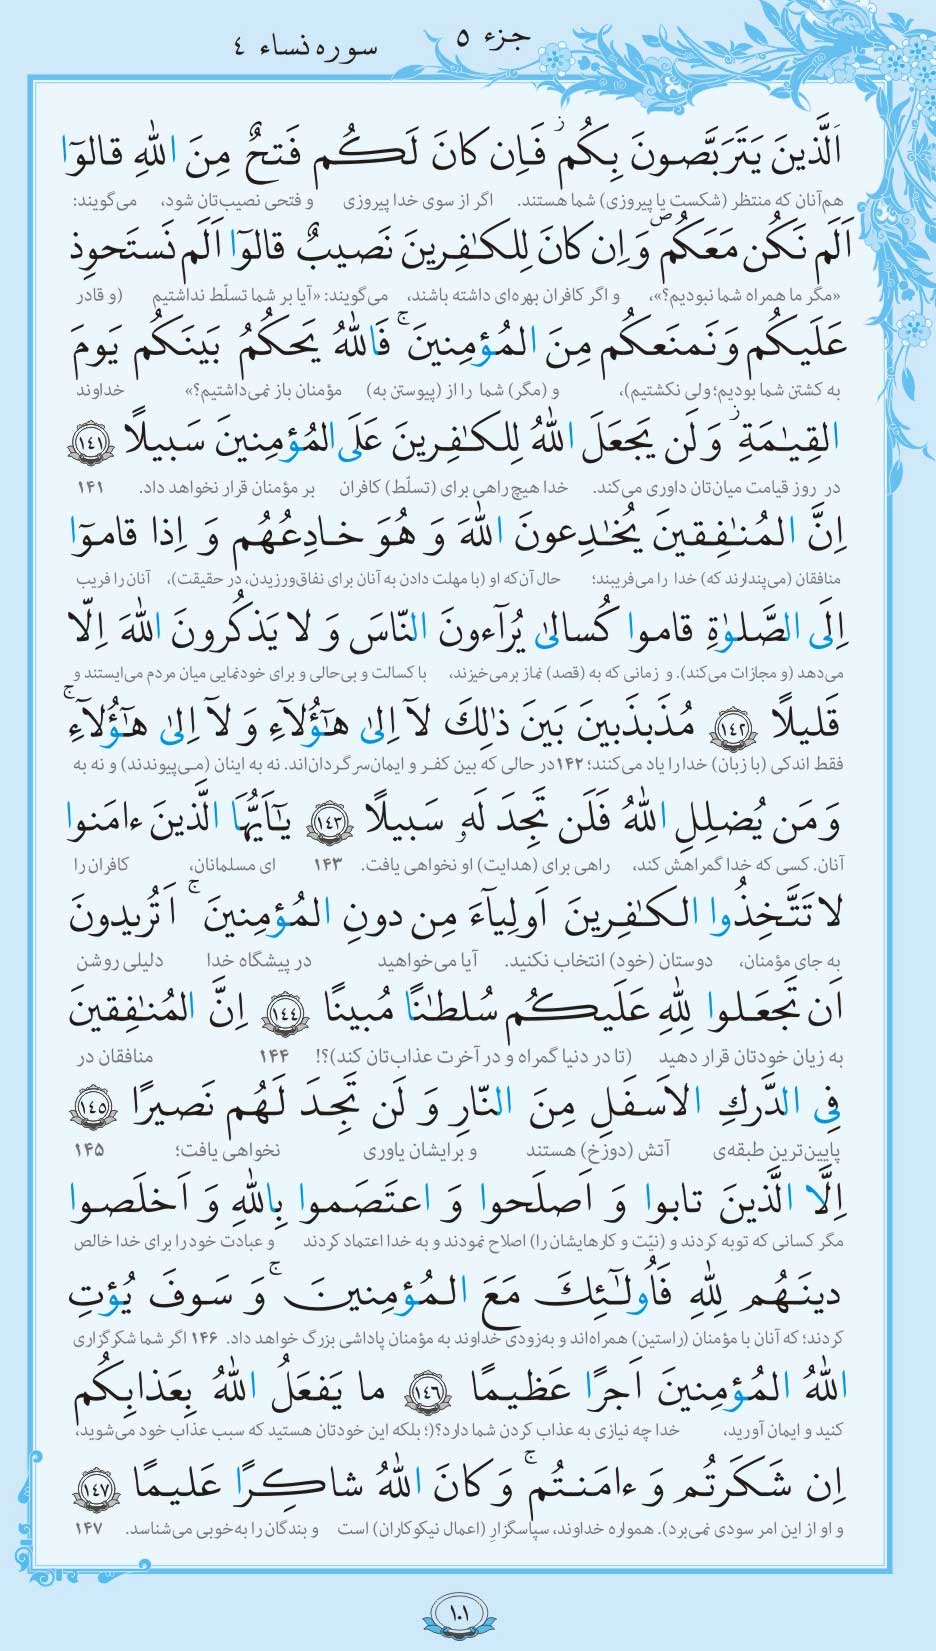 جزء ۵
سوره نساء ۴
اَلَّذینَ یَتَرَبَّصونَ بِکُم ۚ فَاِن کانَ لَکُم فَتحٌ مِنَ اللّٰهِ قالوٓا
هم‌آنان که منتظر (شکست یا پیروزی) شما هستند. اگر از سوی خدا پیروزی و فتحی نصیب‌تان شود، می‌گویند:
اَلَم نَکُن مَعَکُم ۖ وَ اِن کانَ لِلکٰفِرینَ نَصیبٌ قالوٓا اَلَم نَستَحوِذ
«مگر ما همراه شما نبودیم؟»، و اگر کافران بهره‌ای داشته باشند، می‌گویند: «آیا بر شما تسلّط نداشتیم (و قادر
عَلَیکُم وَ نَمنَعکُم مِنَ المُؤمِنینَ ۚ فَاللّٰهُ یَحکُمُ بَینَکُم یَومَ
به کشتن شما بودیم؛ ولی نکشتیم)، و (مگر) شما را از (پیوستن به) مؤمنان باز نمی‌داشتیم؟» خداوند
القِیٰمَةِ ۗ وَ لَن یَجعَلَ اللّٰهُ لِلکٰفِرینَ عَلَی المُؤمِنینَ سَبیلًا ﴿۱۴۱﴾
در روز قیامت میان‌تان داوری می‌کند. خدا هیچ راهی برای (تسلّط) کافران بر مؤمنان قرار نخواهد داد. ۱۴۱
اِنَّ المُنٰفِقینَ یُخٰدِعونَ اللّٰهَ وَ هُوَ خادِعُهُم وَ اِذا قاموٓا
منافقان (می‌پندارند که) خدا را می‌فریبند؛ حال آن‌که او (با مهلت دادن به آنان برای نفاق‌ورزیدن، در حقیقت)، آنان را فریب
اِلَی الصَّلوٰةِ قاموا کُسالیٰ یُرآءونَ النّاسَ وَ لا یَذکُرونَ اللّٰهَ اِلّا
می‌دهد (و مجازات می‌کند). و زمانی که به (قصد) نماز برمی‌خیزند، با کسالت و بی‌حالی و برای خودنمایی میان مردم می‌ایستند و
قَلیلًا ﴿۱۴۲﴾ مُذَبذَبینَ بَینَ ذٰلِکَ لآ اِلیٰ هٰٓؤُلآءِ وَ لآ اِلیٰ هٰٓؤُلآءِ ۚ
فقط اندکی (با زبان) خدا را یاد می‌کنند؛ ۱۴۲ در حالی که بین کفر و ایمان‌سرگردان‌اند. نه به اینان (می‌پیوندند) و نه به
وَ مَن یُضلِلِ اللّٰهُ فَلَن تَجِدَ لَهٗ سَبیلًا ﴿۱۴۳﴾ یٰٓاَیُّهَا الَّذینَ ءامَنوا
آنان. کسی که خدا گمراهش کند، راهی برای (هدایت) او نخواهی یافت. ۱۴۳ ای مسلمانان، کافران را
لا تَتَّخِذُوا الکٰفِرینَ اَولِیآءَ مِن دونِ المُؤمِنینَ ۚ اَتُریدونَ
به جای مؤمنان، دوستان (خود) انتخاب نکنید. آیا می‌خواهید در پیشگاه خدا دلیلی روشن
اَن تَجعَلوا لِلّٰهِ عَلَیکُم سُلطٰنًا مُبینًا ﴿۱۴۴﴾ اِنَّ المُنٰفِقینَ
به زیان خودتان قرار دهید (تا در دنیا گمراه و در آخرت عذاب‌تان کند)؟! ۱۴۴ منافقان در
فِی الدَّرکِ الاَسفَلِ مِنَ النّارِ وَ لَن تَجِدَ لَهُم نَصیرًا ﴿۱۴۵﴾
پایین‌ترین طبقه‌ی آتش (دوزخ) هستند و برایشان یاوری نخواهی یافت؛ ۱۴۵
اِلَّا الَّذینَ تابوا وَ اَصلَحوا وَ اعتَصَموا بِاللّٰهِ وَ اَخلَصوا
مگر کسانی که توبه کردند و (نیّت و کارهایشان را) اصلاح نمودند و به خدا اعتماد کردند و عبادت خود را برای خدا خالص
دینَهُم لِلّٰهِ فَاُولٰٓئِکَ مَعَ المُؤمِنینَ ۚ وَ سَوفَ یُؤتِ
کردند؛ که آنان با مؤمنان (راستین) همراه‌اند و به‌زودی خداوند به مؤمنان پاداشی بزرگ خواهد داد. ۱۴۶ اگر شما شکرگزاری
اللّٰهُ المُؤمِنینَ اَجرًا عَظیمًا ﴿۱۴۶﴾ ما یَفعَلُ اللّٰهُ بِعَذابِکُم
کنید و ایمان آورید، خدا چه نیازی به عذاب کردن شما دارد؟(؛ بلکه این خودتان هستید که سبب عذاب خود می‌شوید،
اِن شَکَرتُم وَ ءامَنتُم ۚ وَ کانَ اللّٰهُ شاکِرًا عَلیمًا ﴿۱۴۷﴾
و او از این امر سودی نمی‌برد). همواره خداوند، سپاسگزارِ (اعمال نیکوکاران) است و بندگان را به‌خوبی می‌شناسد. ۱۴۷
۱۰۱